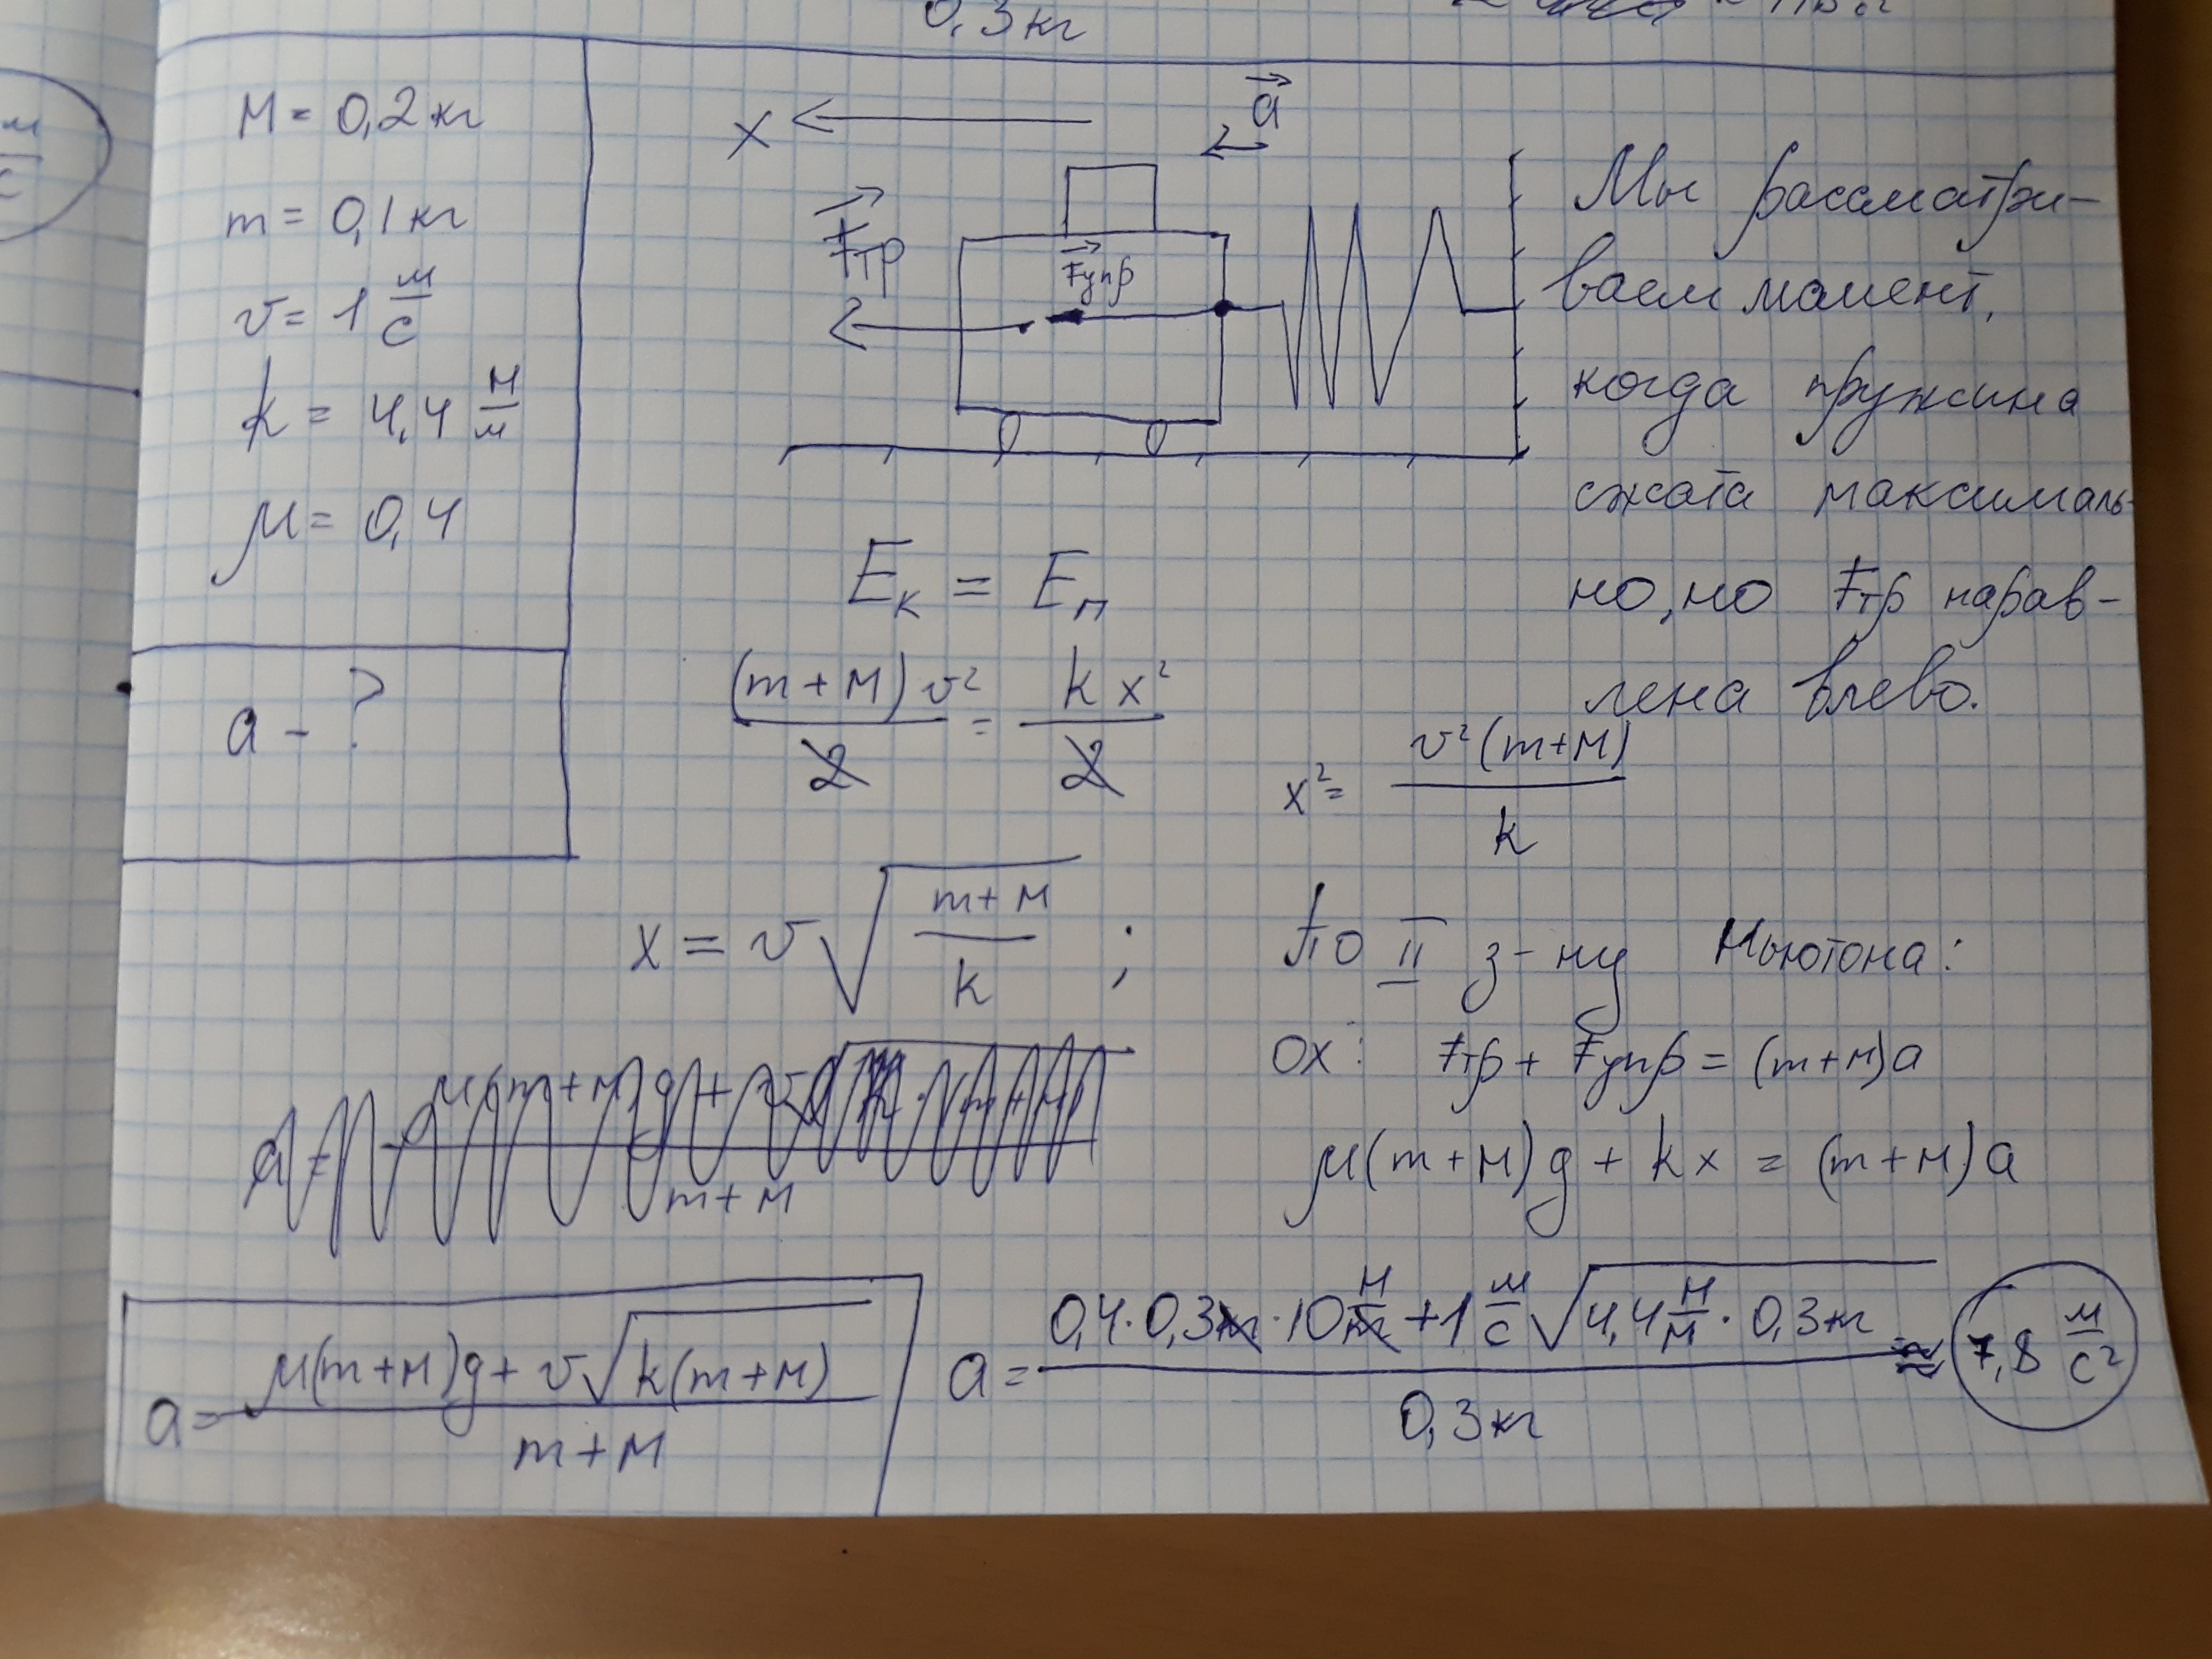 0,3 кг
M = 0,2 кг
m = 0,1 кг
v = 1 м/с
k = 4,4 Н/м
μ = 0,4
a - ?
x
a
Fтр
Fупр
Мы рассматри-
ваем момент,
когда пружина
сжата максималь-
но, но Fтр направ-
лена влево.
Eк = Eп
(m+M)v²/2 = kx²/2
x² = v²(m+M)/k
x = v√((m+M)/k) ;
По II з-ну Ньютона:
OX: Fтр + Fупр = (m+M)a
μ(m+M)g + kx = (m+M)a
a = (μ(m+M)g + v√(k(m+M)))/(m+M)
a = (0,4·0,3кг·10 Н/кг + 1 м/с √(4,4 Н/м · 0,3 кг))/(0,3 кг) ≈ 7,8 м/с²